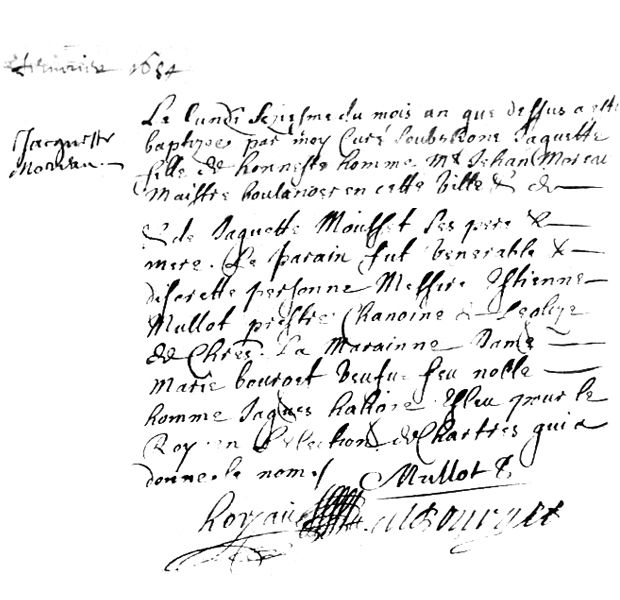 1654
Jacquette
Moreau
Le lundi seiziesme du mois an que dessus a esté
baptizee par moy Curé soubsigné Jaquette
fille de honneste homme Me Jehan Moreau
Maistre boulanger en cette ville & de
& de Jaquette Mousset ses pere &
mere. Le parain fut venerable &
discrette personne Messire Estienne
Mullot prestre Chanoine Leglize
de Chres. La Marainne Dame
Marie bourget veufue feu noble
homme Jaques haliore Esleu pour le
Roy en Lelection de Chartres qui a
donné le nom
Mullot
MBourget